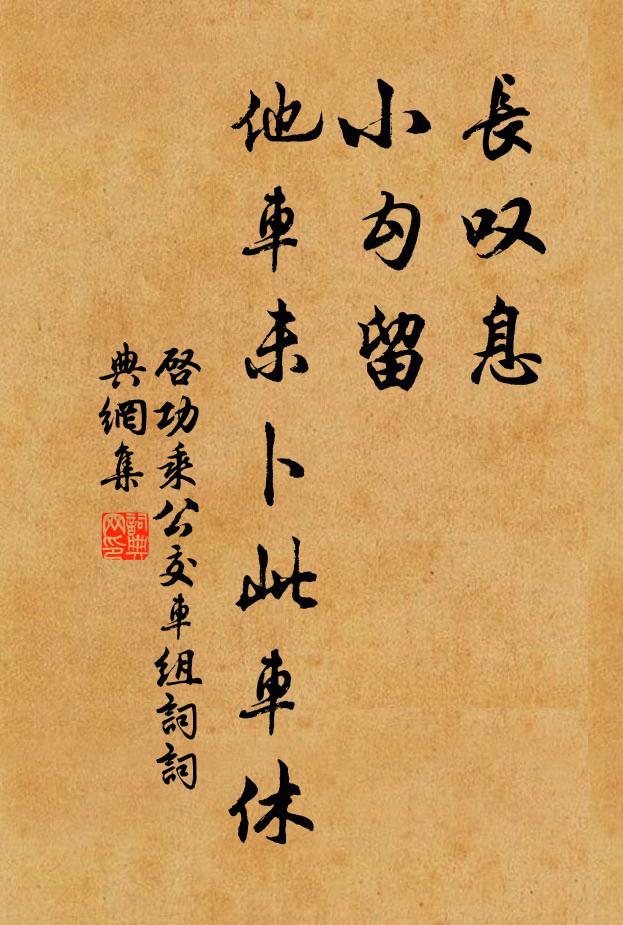 長叹息
小勾留
他車未卜此車休
啓功乘公交車组詞詞
典網集
詞典
网印